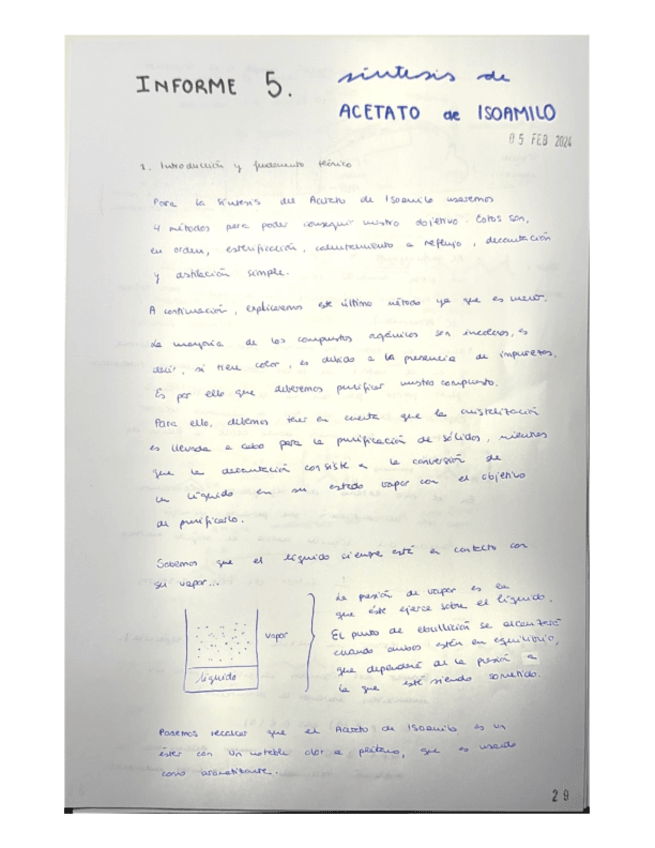 INFORME 5. síntesis de
ACETATO de ISOAMILO
05 FEB 2024
1. Introducción y fundamento teórico
Para la síntesis del Acetato de Isoamilo usaremos
4 métodos para poder conseguir nuestro objetivo. Estos son,
en orden, esterificación, calentamiento a reflujo, decantación
y destilación simple.
A continuación, explicaremos este último método ya que es nuevo.
La mayoría de los compuestos orgánicos son incoloros, es
decir, si tiene color, es debido a la presencia de impurezas.
Es por ello que deberemos purificar nuestro compuesto.
Para ello, debemos tener en cuenta que la cristalización
es llevada a cabo para la purificación de sólidos, mientras
que la decantación consiste en la conversión de
un líquido en su estado vapor con el objetivo
de purificarlo.
Sabemos que el líquido siempre está en contacto con
su vapor...
vapor
líquido
La presión de vapor es la
que éste ejerce sobre el líquido.
El punto de ebullición se alcanzará
cuando ambos estén en equilibrio,
que dependerá de la presión a
la que esté siendo sometido.
Podemos recalcar que el Acetato de Isoamilo es un
éster con un notable olor a plátano, que es usado
como aromatizante.
29